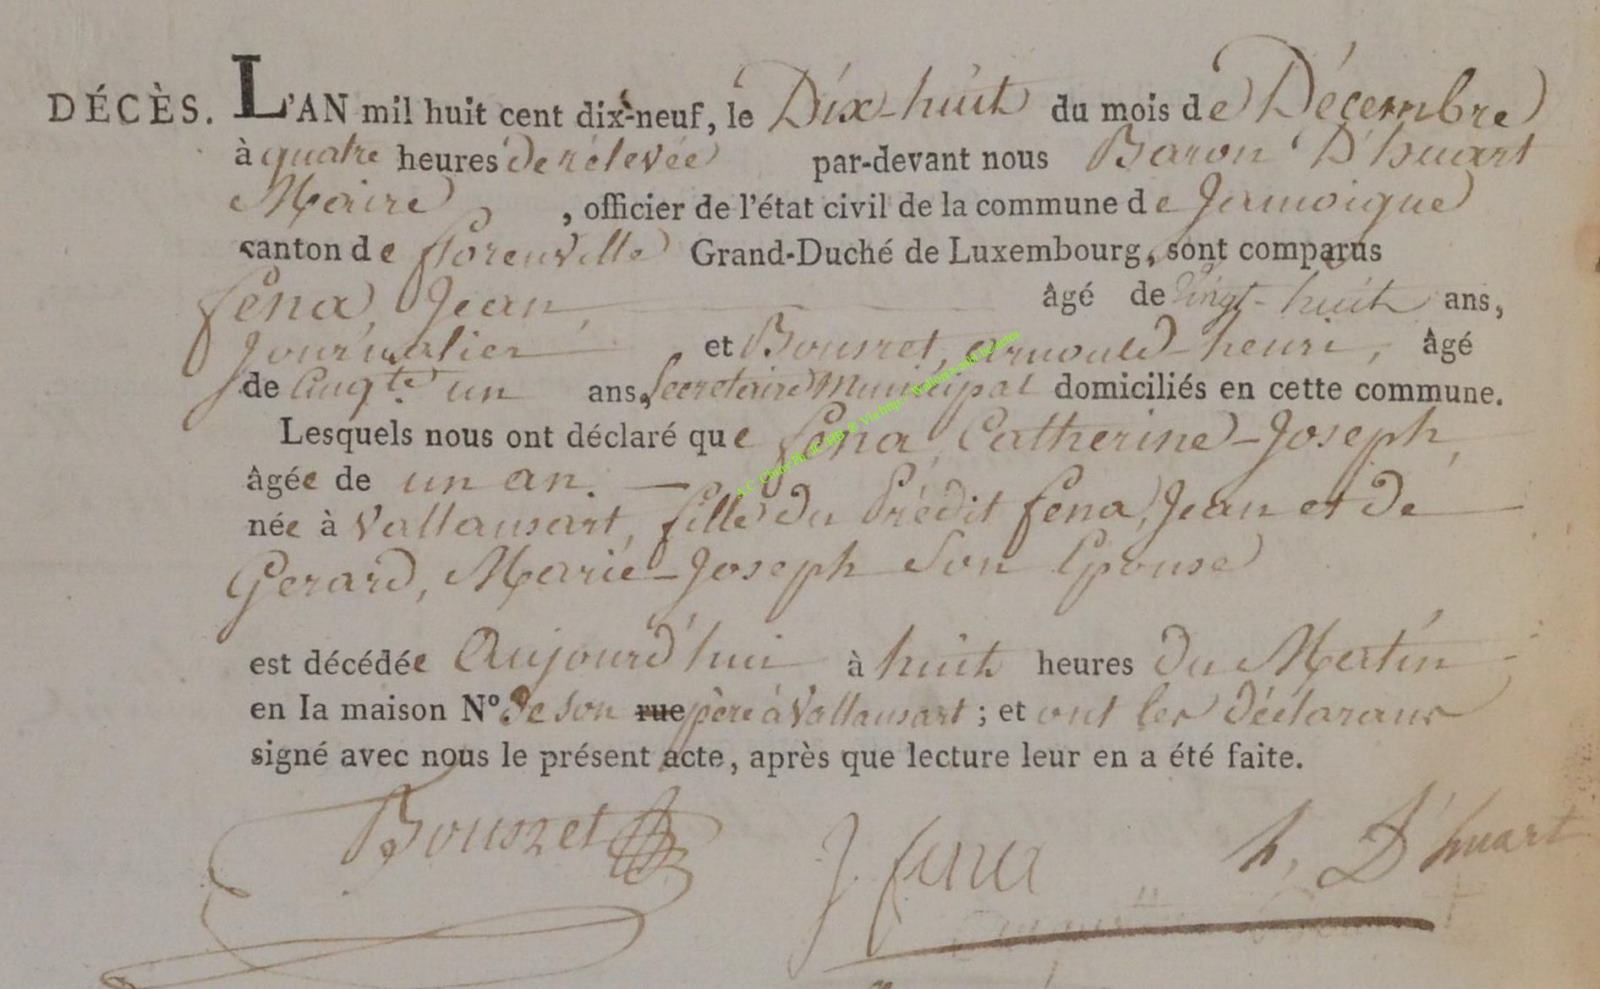 DÉCÈS. L'AN mil huit cent dix-neuf, le Dix-huit du mois de Décembre
à quatre heures de rélevée par-devant nous Baron D'huart
Maire, officier de l'état civil de la commune de Jamoigne
canton de florenville Grand-Duché de Luxembourg, sont comparus
fena, Jean, âgé de vingt-huit ans,
Journalier et Bousret, arnould-henri, âgé
de Cinqte un ans, Secretaire Municipal domiciliés en cette commune.
Lesquels nous ont déclaré que fena, Catherine-Joseph,
âgée de un an.
née à Vallansart, fille du Prédit fena, Jean et de
Gerard, Marie-Joseph son Epouse
est décédée Aujourd'hui à huit heures du Matin
en la maison N° de son rue père à Vallansart ; et ont les déclarans
signé avec nous le présent acte, après que lecture leur en a été faite.
Bousret J. fena h. D'huart